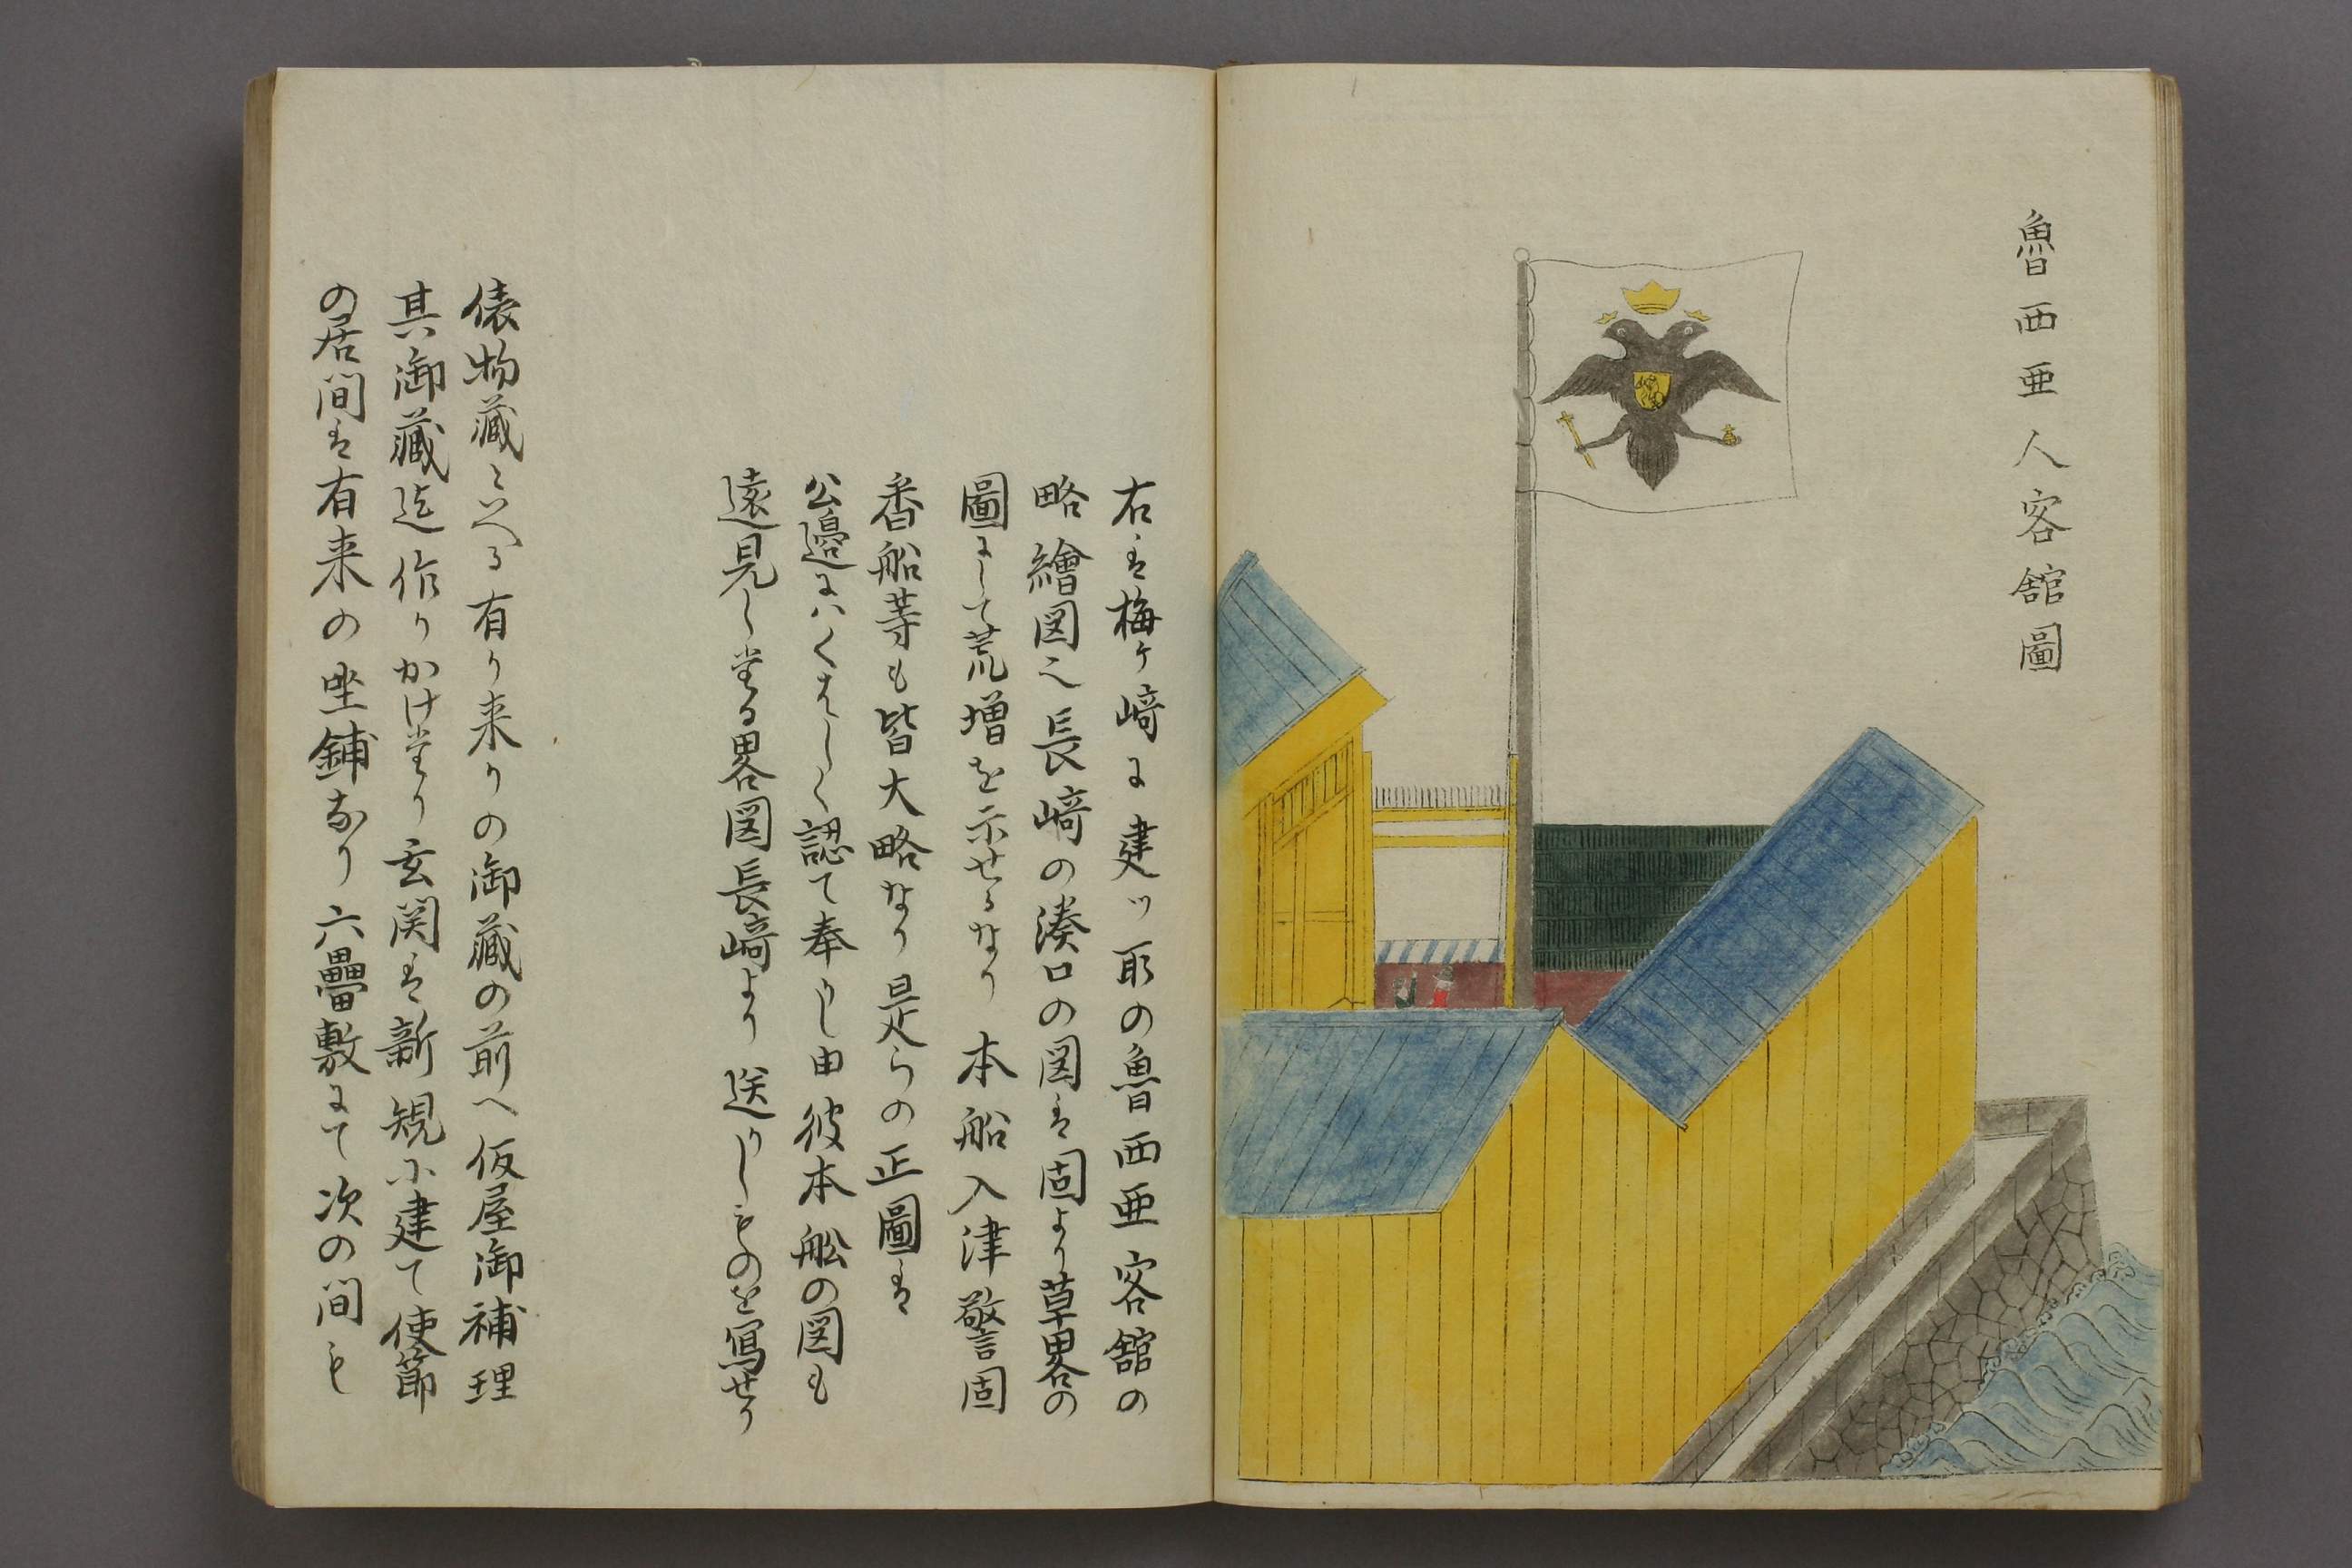 魯西亜人客舘圖
右は梅ケ﨑に建ツ所の魯西亜客舘の
略繪図也長﨑の湊口の図は固より草畧の
圖にして荒増を示せるなり本船入津警固
番船等も皆大略なり是らの正圖は
公邉にハくはしく認て奉りし由彼本舩の図も
遠見したる畧図長﨑より送りしものを寫せり
俵物藏といへる有り来りの御藏の前へ仮屋御補理
其御藏迄作りかけたり玄関は新規に建て使節
の居間は有来の坐鋪なり六疊敷にて次の間も